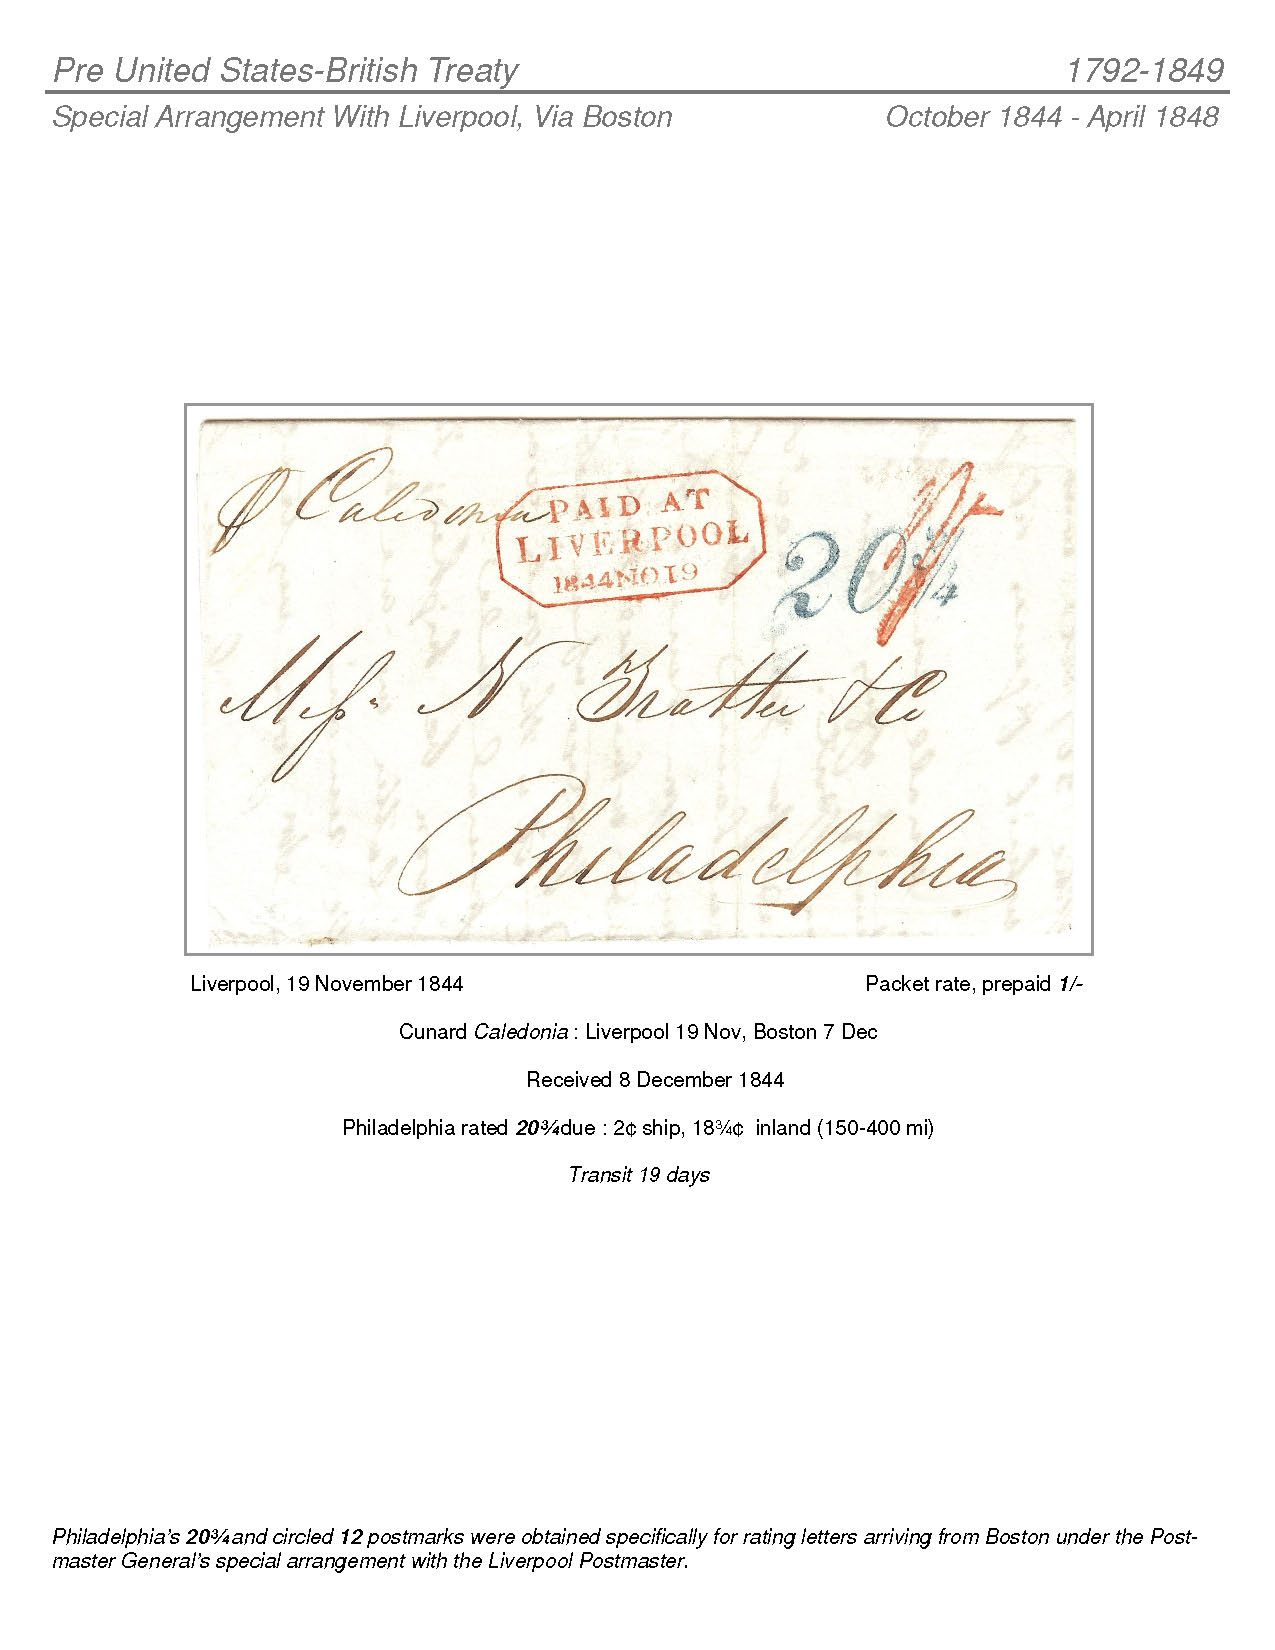 Pre United States-British Treaty 1792-1849
Special Arrangement With Liverpool, Via Boston October 1844 - April 1848
p Caledonia
PAID AT
LIVERPOOL
1844 NO 19
1/-
20 3/4
Messrs N Trotter & Co
Philadelphia
Liverpool, 19 November 1844 Packet rate, prepaid 1/-
Cunard Caledonia : Liverpool 19 Nov, Boston 7 Dec
Received 8 December 1844
Philadelphia rated 20¾ due : 2¢ ship, 18¾¢ inland (150-400 mi)
Transit 19 days
Philadelphia's 20¾ and circled 12 postmarks were obtained specifically for rating letters arriving from Boston under the Post-
master General's special arrangement with the Liverpool Postmaster.